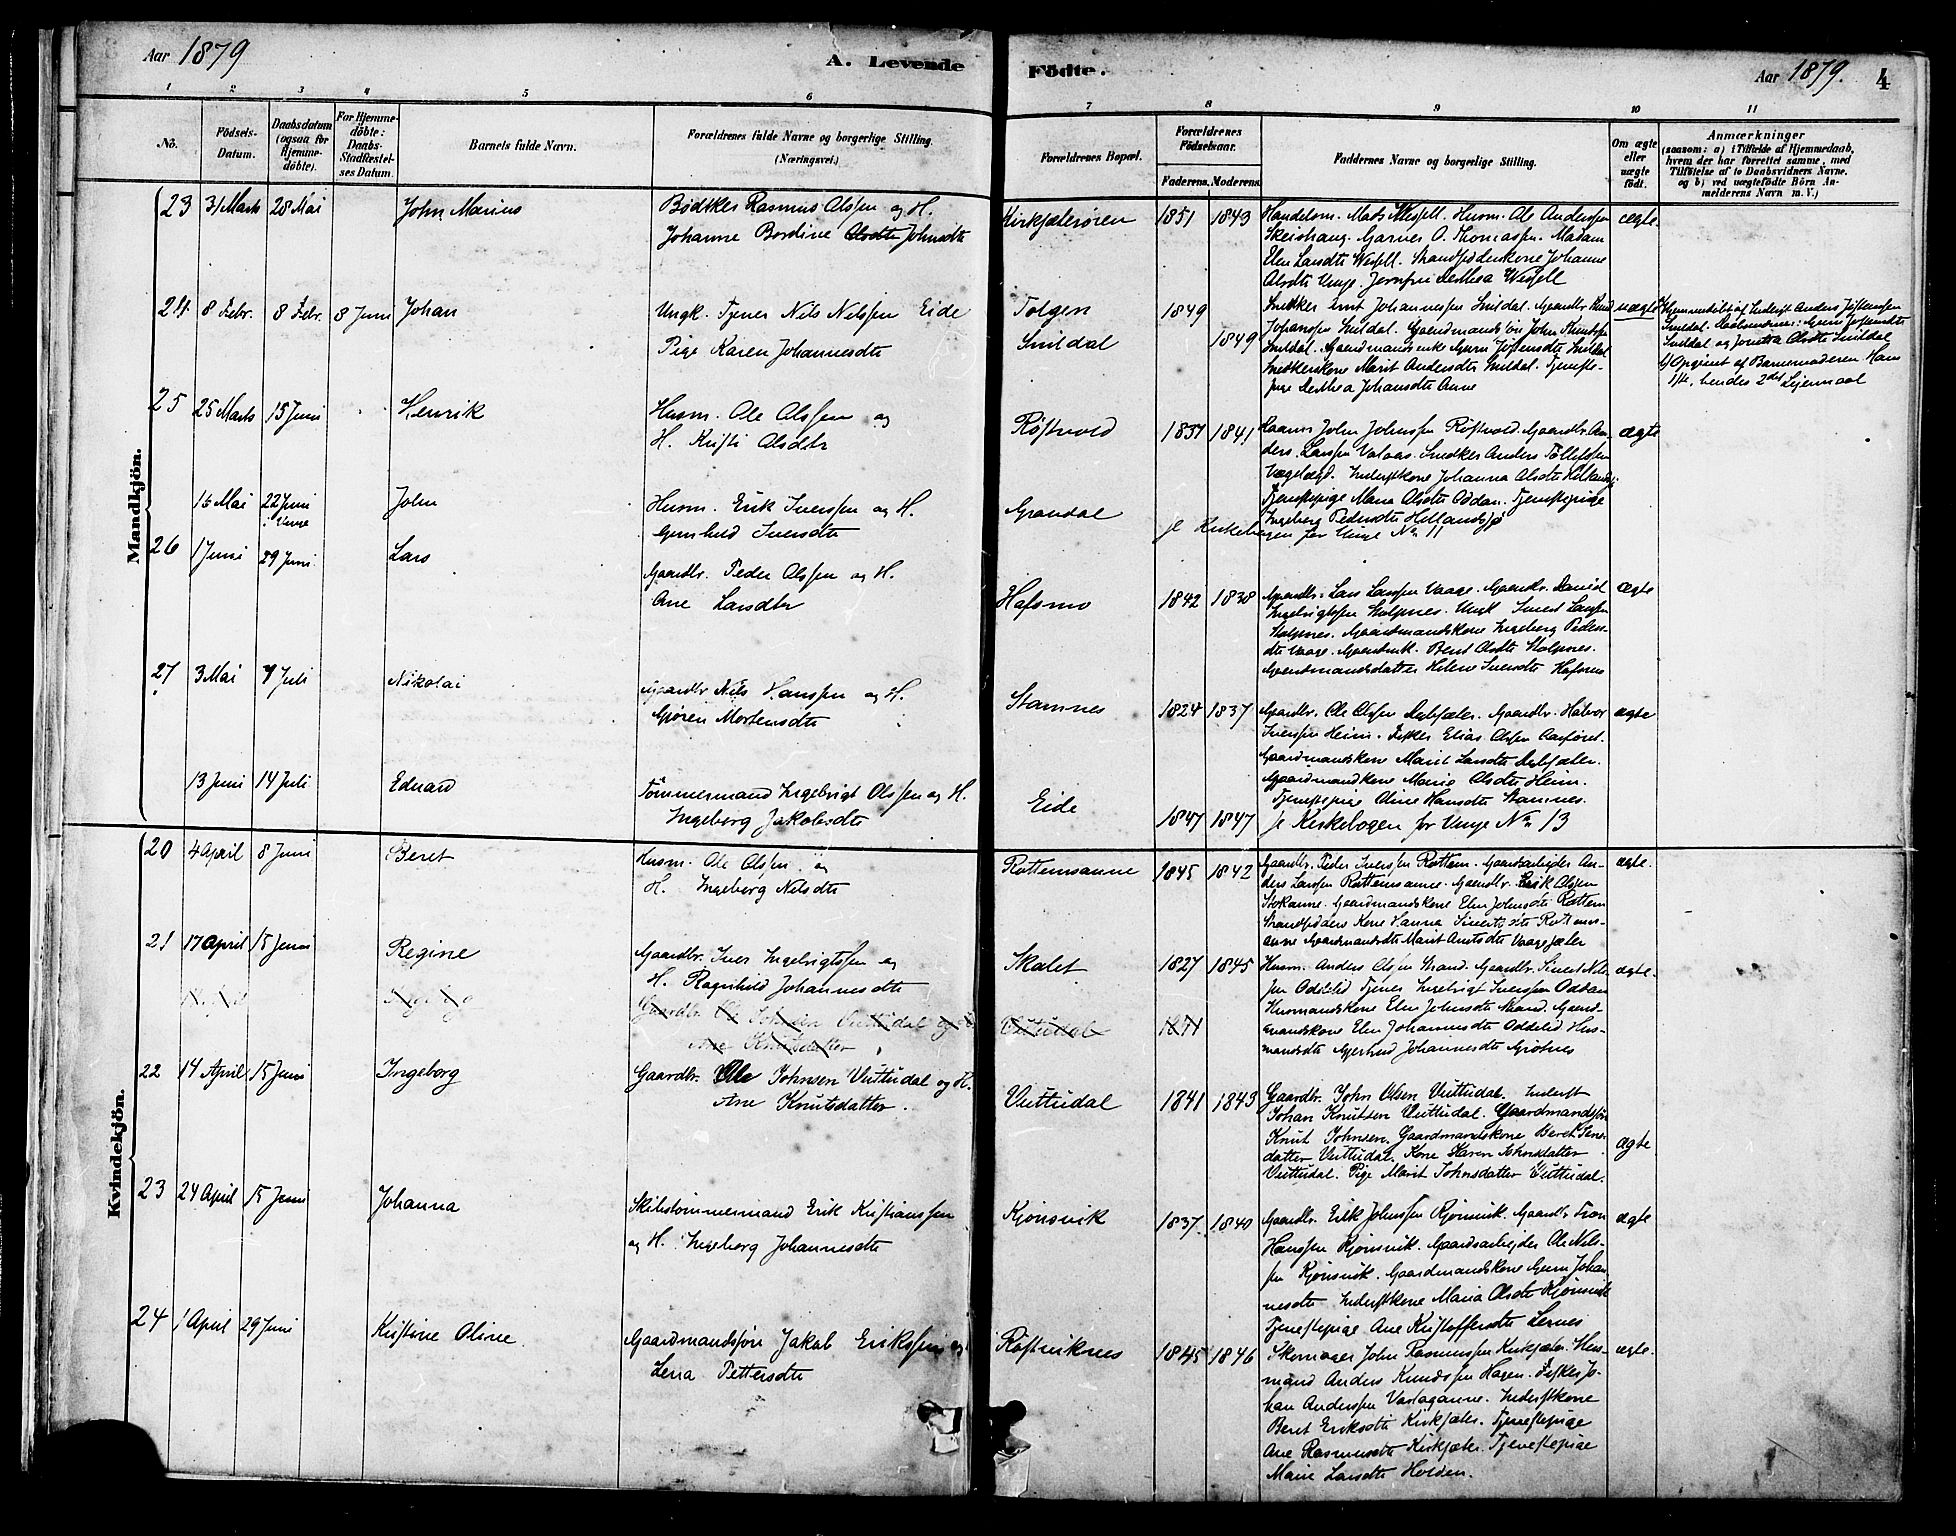 Aar 1879
A. Levende Födte.
Aar 1879. 4
1 2 3 4 5 6 7 8 9 10 11
No.
Födsels-Datum.
Daabsdatum (ogsaa for Hjemmedöbte).
For Hjemmedöbte: Daabs-Stadfæstelses Datum.
Barnets fulde Navn.
Forældrenes fulde Navne og borgerlige Stilling. (Næringsvei.)
Forældrenes Bopæl.
Forældrenes Födselsaar.
Faderens. Moderens.
Faddernes Navne og borgerlige Stilling.
Om ægte eller uægte födt.
Anmærkninger
(saasom: a) i Tilfælde af Hjemmedaab, hvem der har forrettet samme, med Tilföielse af to Daabsvidners Navne, og b) ved uægtefödte Börn Anmelderens Navn m. V.)
Mandkjön.
23 31 Marts 28 Mai John Marius
Bödtker Rasmus Olssen og H.
Johanne Bordine Olsdtr Johnsdtr
Kirksæterøren 1851 1843
Handelsm. Mads Wessell. Husm. Ole Anderssen
Skeishaug. Garver O. Thomassen. Madam
Elen Larsdtr Wessell. Strandsidderkone Johanne
Olsdtr Unge. Jomfru Dorthea Wessell
ægte.
24 8 Febr. 8 Febr. 8 Juni Johan
Ungk. Tjener Nils Nilssen Eide
Pige Karen Johannesdtr
Tolgen 1849
Snildal 1849
Snedker Arnt Johannessen Snildal. Gaardbr. Knud
Johanssen Snildal. Gaardmandssøn John Knudssen
Snildal. Gaardmandsenke Guru Jossensdtr Snildal
Snedkerskone Marit Andersdtr Snildal. Tjeneste-
pige Dorthea Johansdtr Aune
uægte
Hjemmedøbt af Inderst Anders Jossenssen
Snildal og Jonetta Olsdtr Snildal
b) Opgivet af Barnemoderen. Hans
1ste, hendes 2det Leiermaal
25 25 Marts 15 Juni Henrik
Husm. Ole Olssen og
H. Kristi Olsdtr
Røstvold 1837 1841
John Johnssen Røstvold. Gaardbr. An-
ders Larssen Valaas. Snedker Anders Tollefssen
Vægelægd. Inderstkone Johanna Olsdtr
Tjenestepige Maria Olsdtr Oddan. Tjenestepige
Ingeborg Pedersdtr Hellandsjø
ægte
16 Mai 22 Juni John
Husm. Erik Ivarssen og H.
Gunhild Iversdtr
Grandal
se Kirkebogen for Vinje No 11
26 1 Juni 29 Juni. Lars
Gaardbr. Peder Olssen og H.
Ane Larsdtr
Hafsmo 1842 1838
Gaardbr. Lars Larssen Vaage. Gaardbr. Daniel
Ingebrigtssen Stolpnes. Ungk. Sivert Larssen
Stolpnes. Gaardmandskone Ingeborg Peders-
dtr Vaage. Gaardenk. Beret Olsdtr Stolpnes.
Gaardmandsdatter Helene Iversdtr Hafsmo
ægte
27 3 Mai 7 Juli Nikolai
Gaardbr. Nils Hanssen og H.
Gjøren Mortensdtr
Stamnes 1824 1837
Gaardbr. Ole Olssen Belsæter. Gaardbr. Halvor
Iverssen Heim. Fisker Elias Olssen
Gaardmandskone Marit Larsdtr Belsæter.
Gaardmandkone Marie Olsdtr Heim.
Tjenestepige Oline Hansdtr Stamnes.
ægte
13 Juni 14 Juli Edvard
Tømmermand Ingebrigt Olssen og H.
Ingeborg Jakobsdtr
Eide 1847 1847
se Kirkebogen for Vinje No 13
Kvindekjön.
20 4 April 8 Juni Beret
Husm. Ole Olssen og
H. Ingeborg Nilsdtr
Rottemsaune 1845 1842
Gaardbr. Peder Iverssen Rottem. Gaardsarbeider An-
ders Larssen Rottemsaune. Gaardbr. Erik Olssen
Stokaune. Gaardmandskone Elen Johnsdtr Rottem
Strandsidders Kone Hanna Sivertsdtr Rottems-
aune Gaardmandsdtr Marit Arntsdtr Vaagesæter
ægte.
21 17 April 15 Juni Regine
Gaardbr. Iver Ingebrigtssen og
H. Ragnhild Johannesdtr
Skalet 1827 1845
Husm. Anders Olssen Strand. Gaardbr. Sivert Nils-
sen Oddelid Tjener Ingebrigt Iverssen Oddan
Husmandskone Elen Johnsdtr Strand. Gaard-
mandskone Elen Johannesdtr Oddelid Hus-
mandsdtr Gjertrud Johannesdtr Gjøtnes
ægte.
Ingeborg
Gaardbr. Ole Johnsen Vuttudal og H.
Ane Knutsdatter
Vuttudal 1841
22 14 April 15 Juni Ingeborg
Gaardbr. Ole Johnsen Vuttudal og H.
Ane Knutsdatter.
Vuttudal 1841 1843
Gaardbr. John Olsen Vuttudal. Inderst
Johan Knutsen Vuttudal. Gaardmandssøn
Knut Johnsen. Gaardmandskone Beret Iver-
datter Vuttudal. Kone Karen Johnsdatter
Vuttudal. Pige Marit Johnsdatter Vuttudal.
ægte
23 24 April 15 Juni Johanna
Skibstømmermand Erik Kristianssen
og H. Ingeborg Johannesdtr
Kjønsvik 1837 1840
Gaardbr. Erik Johnssen Kjønsvik. Gaardbr. Tron
Hanssen Kjønsvik. Gaardsarbejder Ole Nils-
sen Kjønsvik. Gaardmandskone Guru Johan-
nesdtr Inderstkone Maria Olsdtr Kjønsvik
Tjenestepige Ane Kristoffersdtr Lernes
ægte
24 1 April 29 Juni Kristine Oline
Gaardmandssøn Jakob Erikssen og
Lena Pettersdtr
Røstviknes 1845 1846
Skomager John Rasmussen Kirksæter. Hus-
mand Anders Knudssen Hagen. Fisker Jo-
han Anderssen Vaslagaune. Inderstkone
Beret Eriksdtr Kirksæter. Tjenestepige
Ane Rasmusdtr Kirksæter. Tjenestepige
Marie Larsdtr Holden.
ægte.